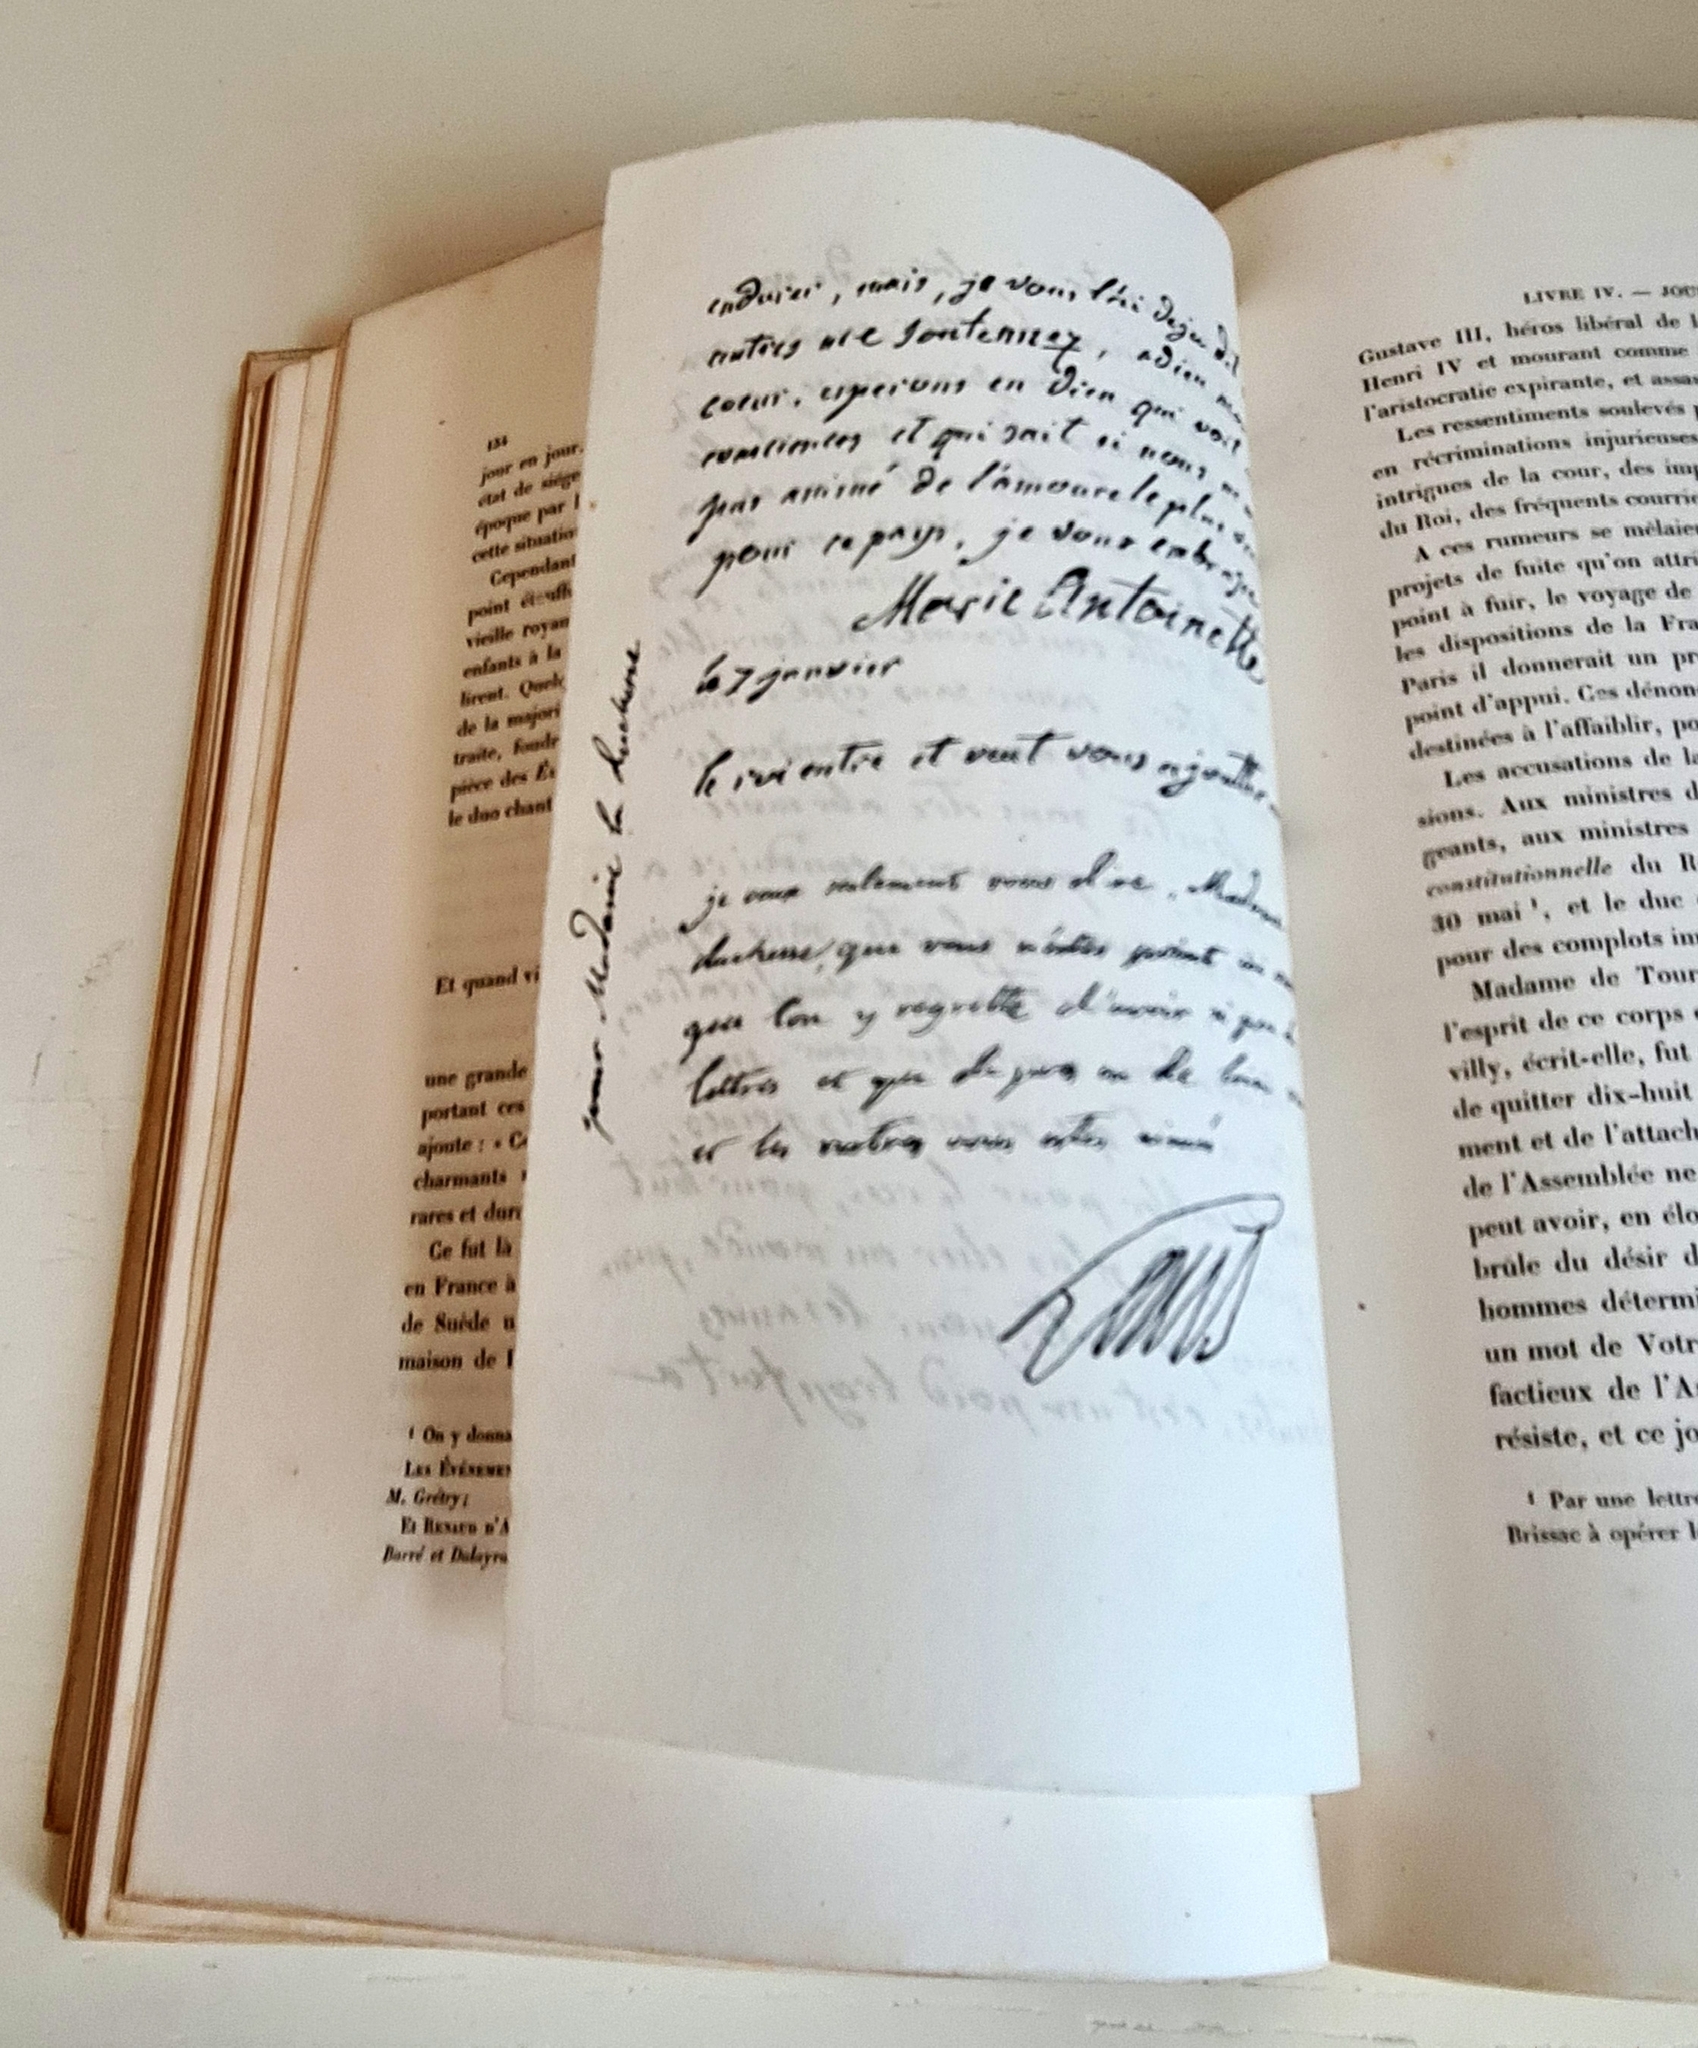 154
jour en jour.
état de siége
époque par l
cette situatio
Cependant
point étouff
vieille royau
enfants à la
lirent. Quel
de la majori
traite, foudr
pièce des Év
le duo chant
Et quand vi
une grande
portant ces
ajoute : « Ce
charmants
rares et duri
Ce fut là
en France à
de Suède u
maison de l
¹ On y donna
LES ÉVÉNEMEN
M. Grétry;
Et RENAUD D'A
Barré et Dalayra
pour Madame la duchesse
endurer, mais, je vous l'ai deja dit
autres me soutennez, adieu mo
coeur, esperons en dieu qui voit
consciences et qui sait si nous ne
pas animé de l'amour le plus vrai
pour ce pays, je vous embrasse
Marie Antoinette
le 7 janvier
le roi entre et veut vous ajoutter
je veux seulement vous dire, Madame
duchesse, que vous n'êtes point
que l'on y regrette d'avoir si peu
lettres et que de pres ou de loin
et les votres vous estes aimé
Louis
LIVRE IV. — JOU
Gustave III, héros libéral de l
Henri IV et mourant comme
l'aristocratie expirante, et assas
Les ressentiments soulevés p
en récriminations injurieuses
intrigues de la cour, des imp
du Roi, des fréquents courri
A ces rumeurs se mêlaien
projets de fuite qu'on attri
point à fuir, le voyage de
les dispositions de la Fra
Paris il donnerait un pr
point d'appui. Ces dénon
destinées à l'affaiblir, po
Les accusations de la
sions. Aux ministres d
geants, aux ministres
constitutionnelle du R
30 mai ¹, et le duc
pour des complots im
Madame de Tour
l'esprit de ce corps
villy, écrit-elle, fut
de quitter dix-huit
ment et de l'attach
de l'Assemblée ne
peut avoir, en élo
brûle du désir d
hommes détermi
un mot de Votr
factieux de l'As
résiste, et ce jo
¹ Par une lettre
Brissac à opérer l